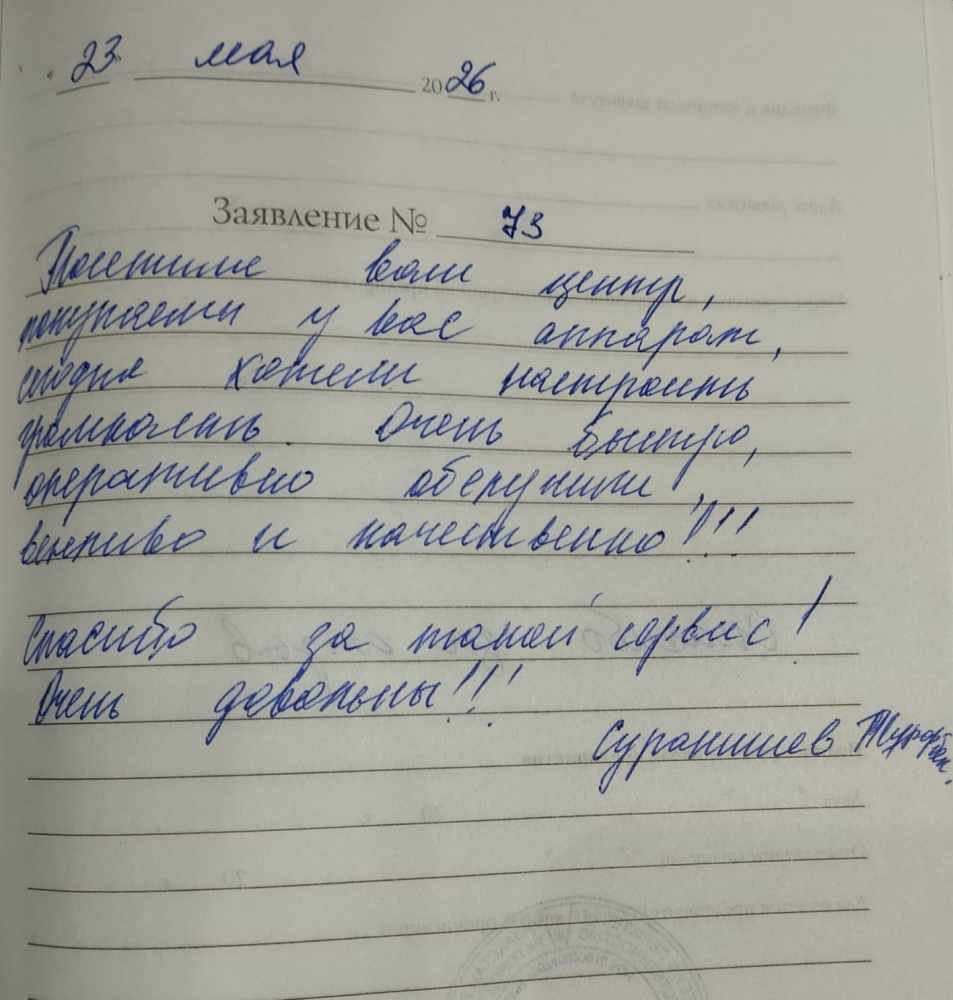 « 23 » мая 2026 г.
Заявление № 73
Посетили ваш центр,
покупаем у вас аппарат,
сегодня хотели настроить
громкость. Очень быстро,
оперативно обслужили,
вежливо и качественно!!!
Спасибо за такой сервис!
Очень довольны!!!
Суранчиев Турорбек.